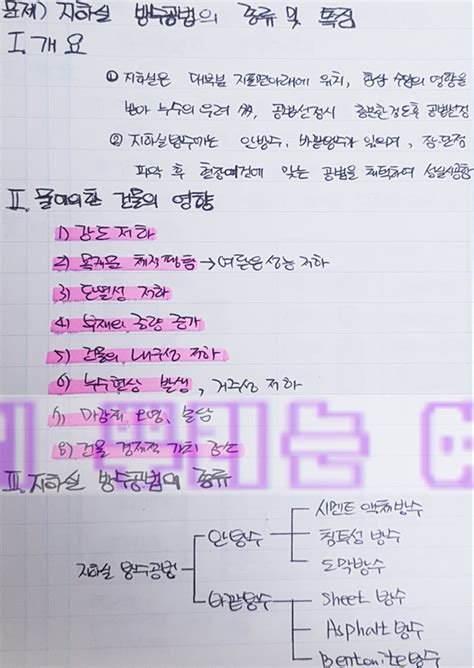 문제) 지하실 방수공법의 종류 및 특징
I. 개요
① 지하실은 대부분 지표면아래에 위치, 항상 수압의 영향을
받아 누수의 우려 有, 공법선정시 충분한 검토후 공법선정
② 지하실방수에는 안방수, 바깥방수가 있으며, 장단점
파악 후 현장여건에 맞는 공법을 채택하여 성실시공함
II. 물에의한 건물의 영향
1) 강도 저하
2) 목재문 체적팽창 → 여닫음 성능 저하
3) 단열성 저하
4) 부재의 중량 증가
5) 건물의 내구성 저하
6) 누수현상 발생, 거주성 저하
7) 마감재 오염, 손상
8) 건물 경제적 가치 감소
III. 지하실 방수공법의 종류
지하실 방수공법
안방수
시멘트 액체방수
침투성 방수
도막방수
바깥방수
Sheet 방수
Asphalt 방수
Bentonite 방수